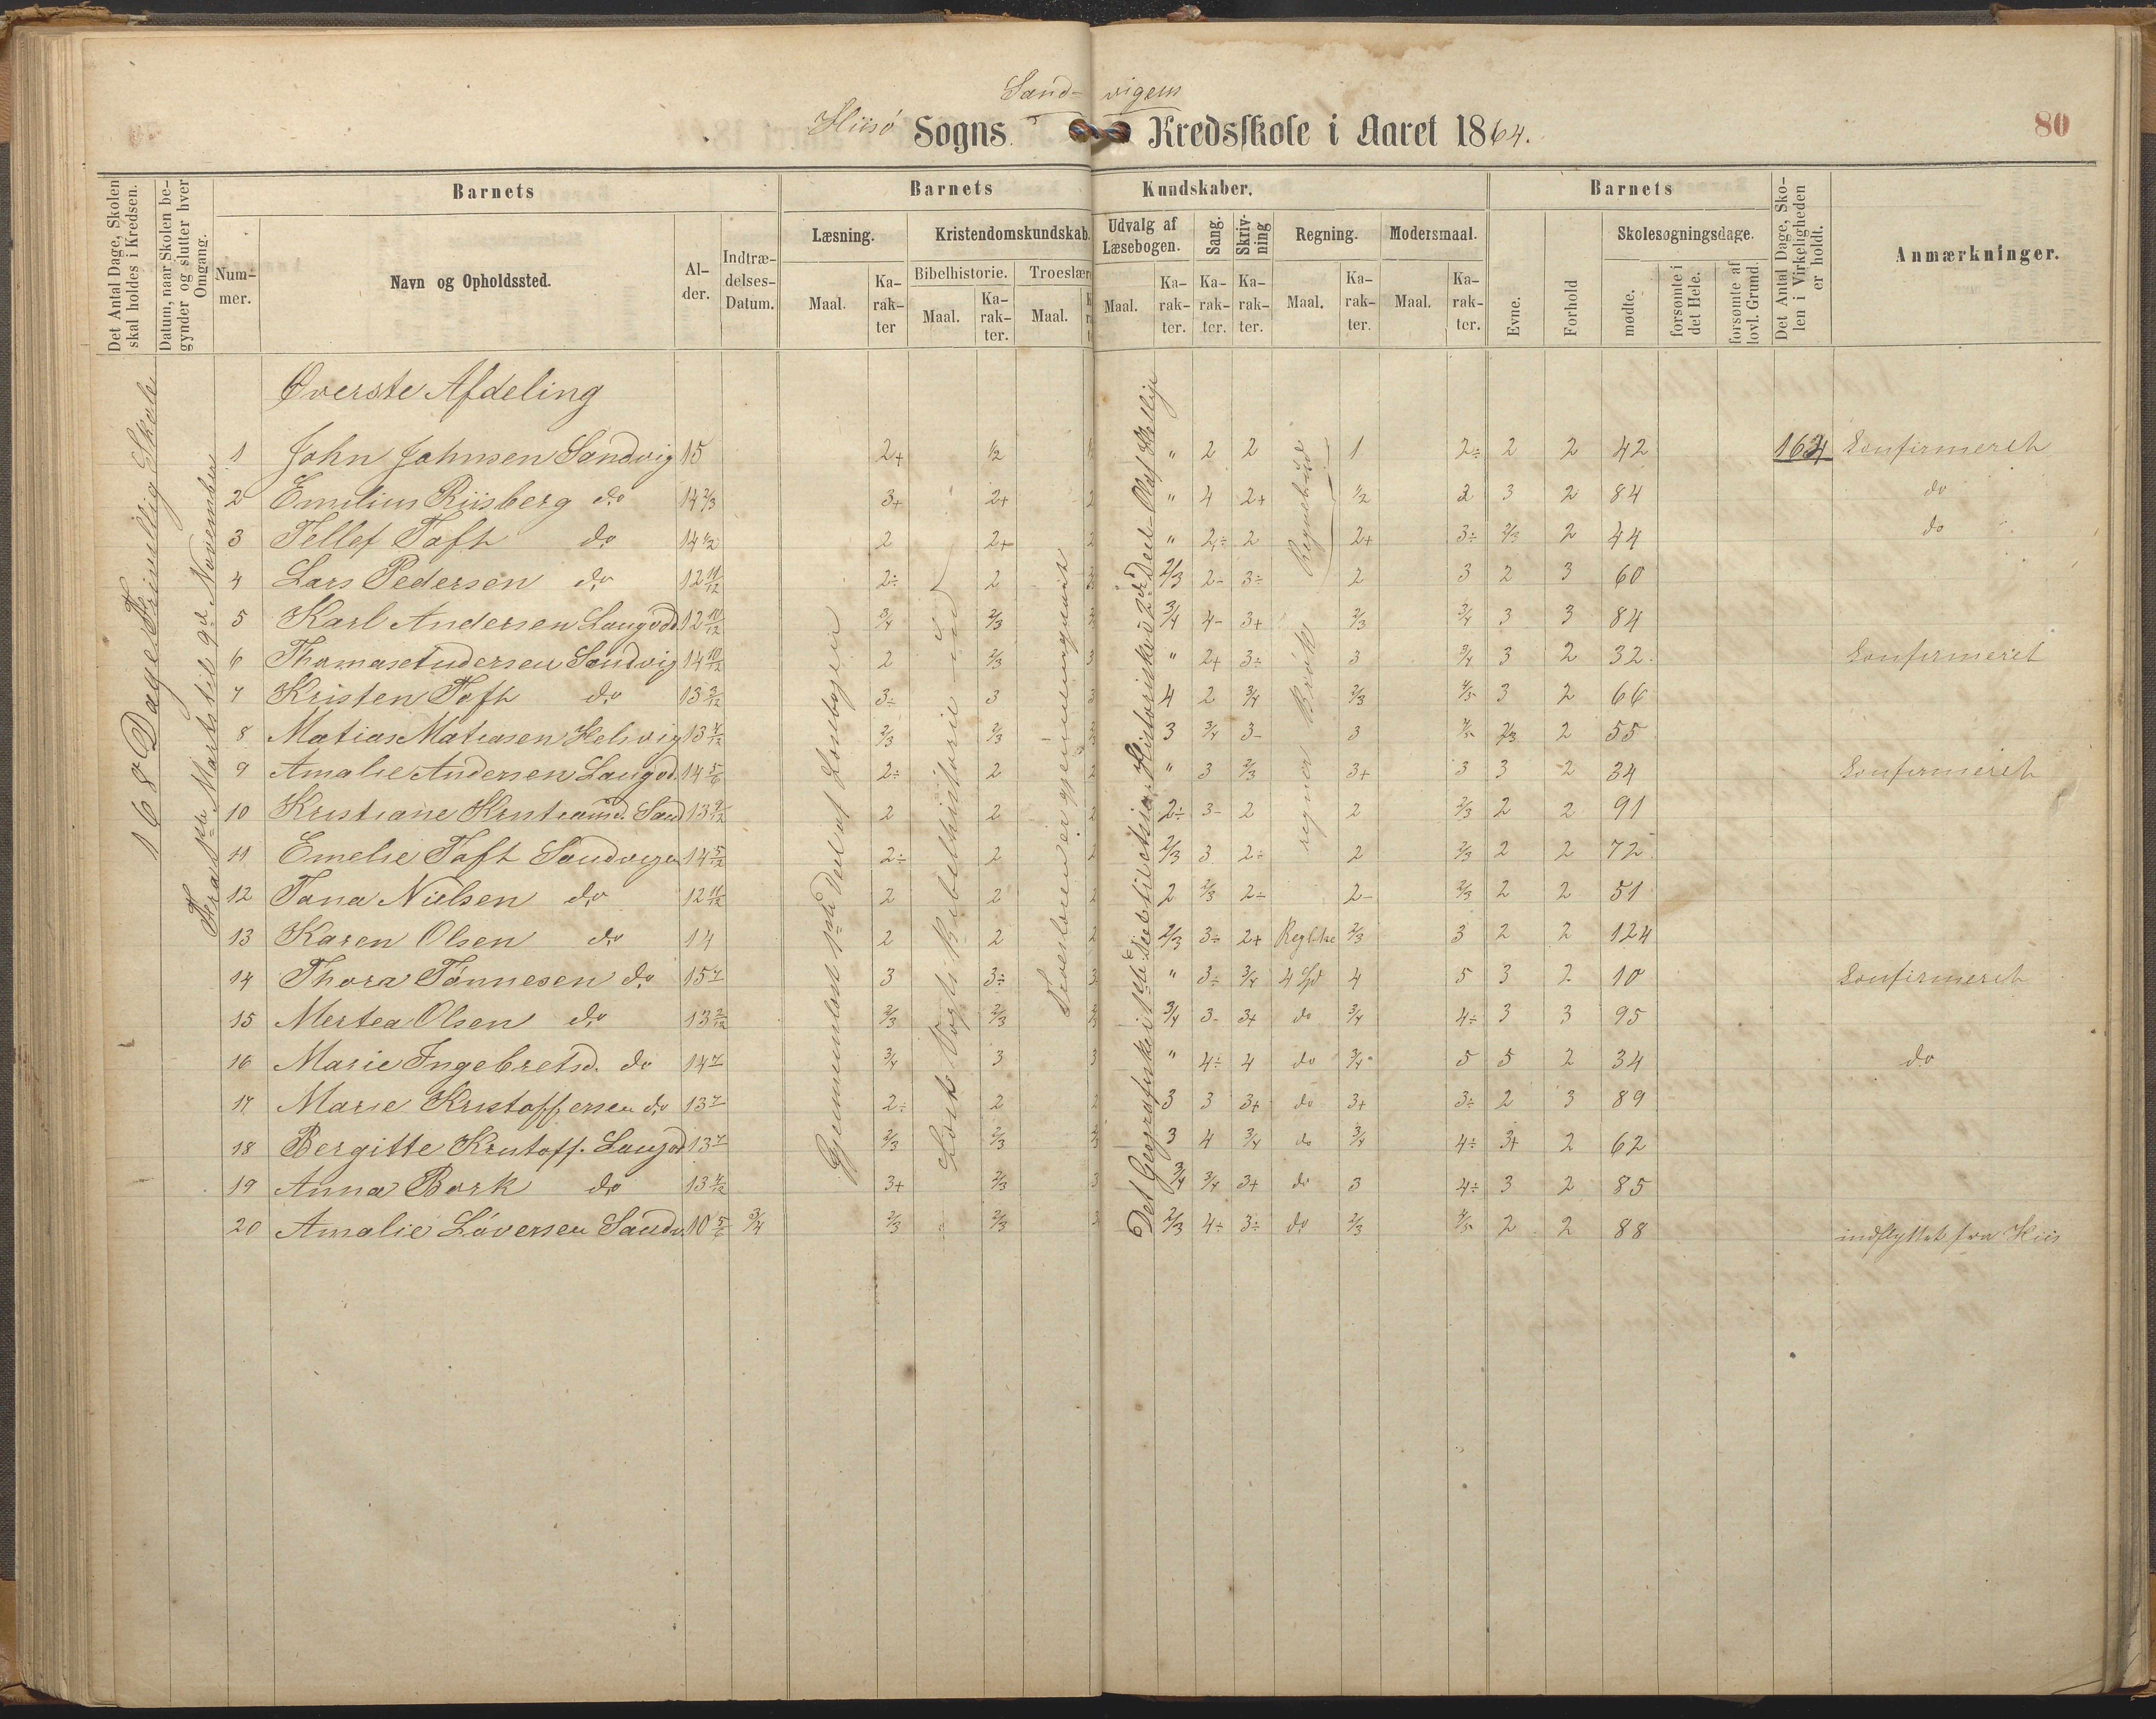 Sand- vigens
Hiisö Sogns Kredsskole i Aaret 1864.
80
Det Antal Dage, Skolen skal holdes i Kredsen.
Datum, naar Skolen begynder og slutter hver Omgang.
Barnets
Barnets Kundskaber.
Barnets
Det Antal Dage, Skolen i Virkeligheden er holdt.
Anmærkninger.
Nummer.
Navn og Opholdssted.
Alder.
Indtrædelses-Datum.
Læsning.
Kristendomskundskab.
Udvalg af Læsebogen.
Sang.
Skrivning
Regning.
Modersmaal.
Evne.
Forhold
Skolesøgningsdage.
Bibelhistorie.
Troeslær
Maal.
Karakter
Maal.
Karakter.
Maal.
Maal.
Karakter.
Karakter.
Karakter.
Maal.
Karakter.
Maal.
Karakter.
mødte.
forsømte i det Hele.
forsømte af lovl. Grund.
168 Dage Frivillig Skole
Fra 1ste Marts til 9de November
Øverste Afdeling
Gjennemlæst 1ste Deel af Læsebogen
Læst Vogts Bibelhistorie ud
Troeslæren er gjennemgaaet
Det Geografiske i 1ste Deel til Asia. Historiske 2den Deel - Olaf Hellige
1 John Johnsen Sandvig 15 2+ 1/2 " 2 2 1 2÷ 2 2 42 164 Konfirmeret
2 Emilius Riisberg do 14 2/3 3+ 2+ 2 " 4 2+ 1/2 2 3 2 84 do
3 Tellef Toft do 14 1/2 2 2+ 2 " 2÷ 2 2+ 3÷ 2/3 2 44 do
4 Lars Pedersen do 12 11/12 2÷ 2 2/3 2- 3÷ 2 3 2 3 60
5 Karl Andersen Langvod 12 10/12 3/4 2/3 3/4 4- 3+ 2/3 3/4 3 3 84
6 Thomas Andersen Sandvig 14 10/12 2 2/3 3 " 2+ 3÷ 3 3/4 3 2 32 Konfirmeret
7 Kristen Toft do 13 2/12 3÷ 3 3 4 2 3/4 2/3 4/5 3 2 66
8 Matias Matiasen Helsvig 13 4/12 2/3 2/3 3 3/4 3- 3 4/5 2/3 2 55
9 Amalie Andersen Langvod. 14 5/6 2÷ 2 2 " 3 2/3 3+ 3 3 2 34 Konfirmeret
10 Kristiane Kristiansd. Sand 13 9/12 2 2 2 2÷ 3- 2 2 2/3 2 2 91
11 Emelie Toft Sandvigen 14 5/12 2÷ 2 2 2/3 3 2÷ 2 2/3 2 2 72
12 Tona Nielsen do 12 11/12 2 2 2 2 2/3 2÷ 2- 2/3 2 2 51
13 Karen Olsen do 14 2 2 2 2/3 3÷ 2+ 2/3 3 2 2 124
14 Thora Tönnesen do 15 3 3÷ 3 " 3÷ 3/4 4 5 3 2 10 Konfirmeret
15 Mertea Olsen do 13 2/12 2/3 2/3 3/4 3- 3+ do 3/4 4÷ 3 3 95
16 Marie Ingebretsd. do 14 3/4 3 3 " 4÷ 4 do 3/4 5 5 2 34 do
17 Marie Kristoffersen do 13 2÷ 2 2 3 3 3+ do 3+ 3÷ 2 3 89
18 Bergitte Kristoff. Langvod 13 2/3 2/3 3 4 3/4 do 3/4 4÷ 3+ 2 62
19 Anna Bork do 13 4/12 3+ 2/3 3 3/4 3/4 3+ do 3 4÷ 3 2 85
20 Amalie Löversen Sandv. 10 5/6 3/4 2/3 2/3 3 2/3 4÷ 3÷ do 2/3 4/5 2 2 88 indflyttet fra Hiis